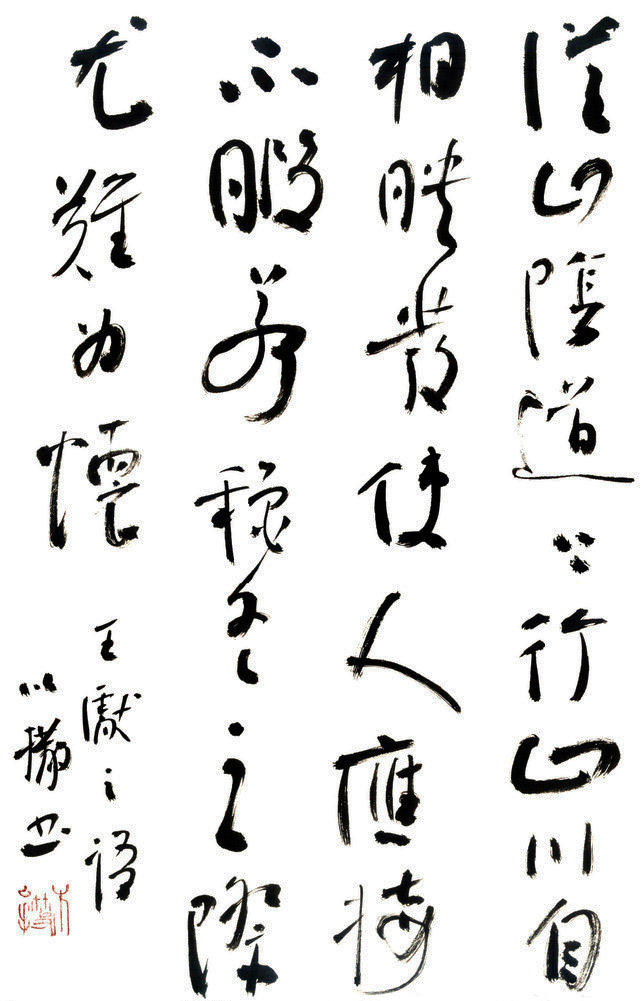 從山陰道上行山川自
相映發使人應接
不暇若秋冬之際
尤難為懷
王獻之語
以撒书